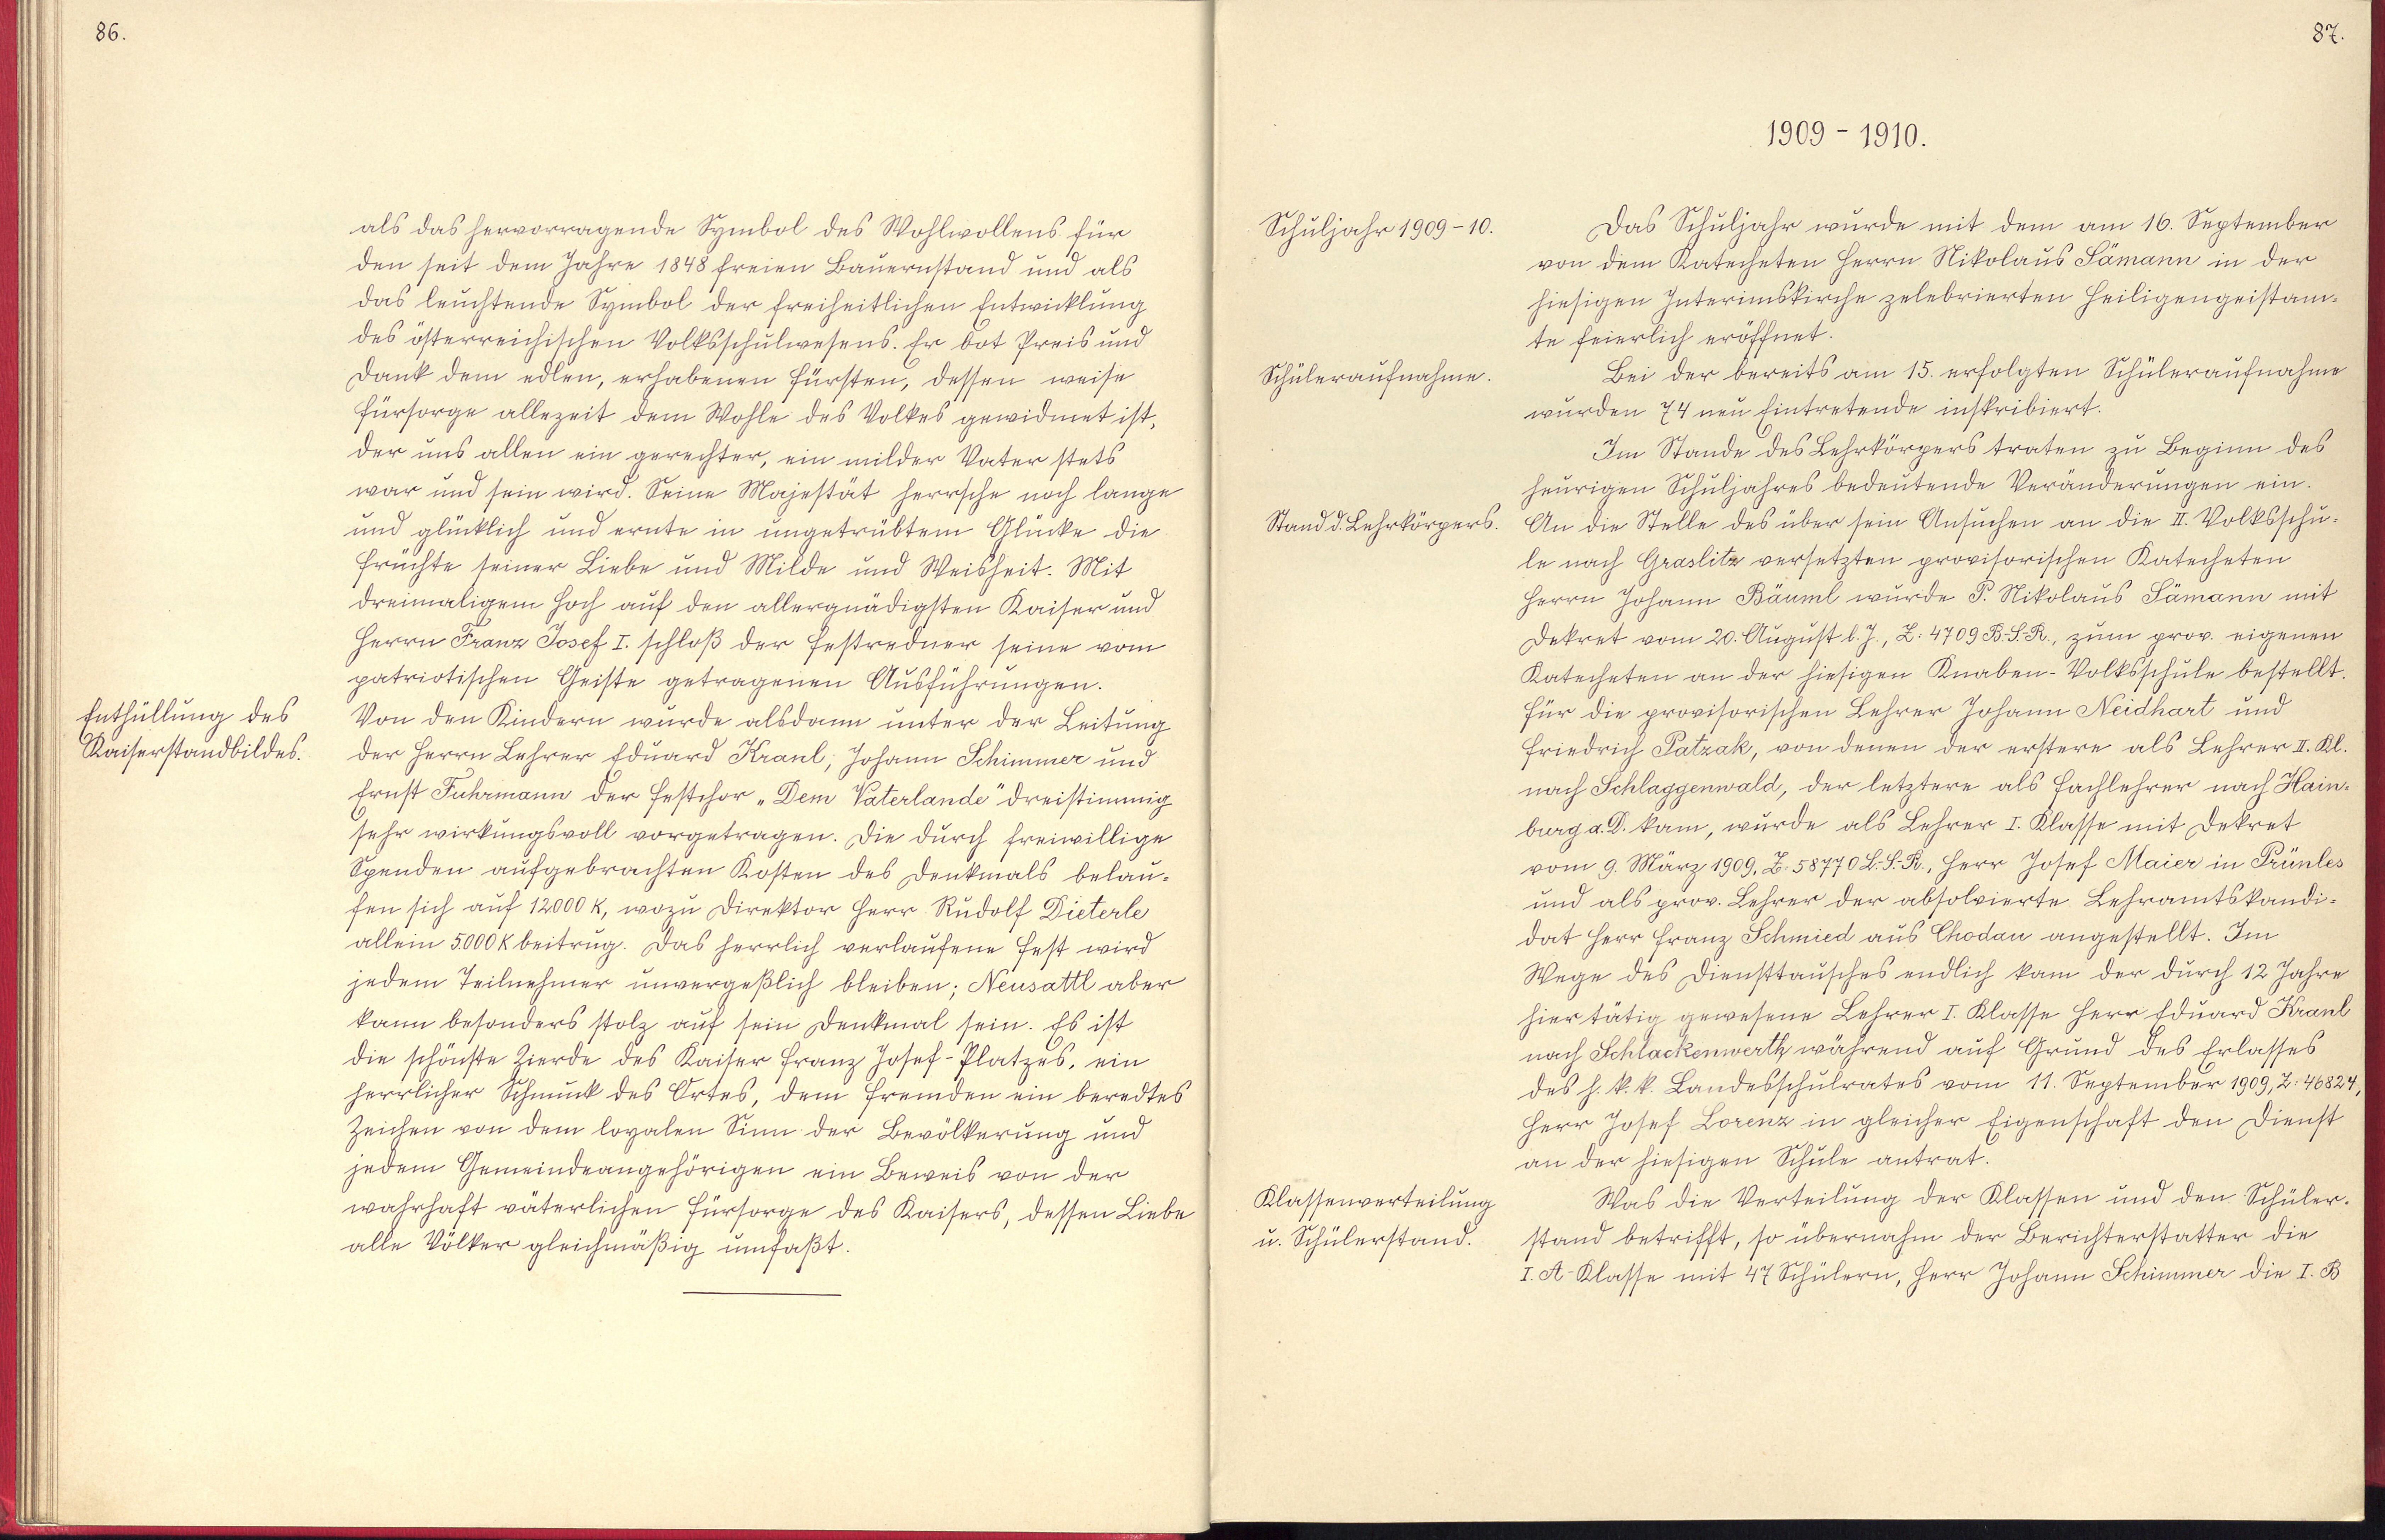 86.
als das hervorragende Symbol des Wohlwollens für
den seit dem Jahre 1848 freien Bauernstand und als
das leuchtende Symbol der freiheitlichen Entwicklung
des österreichischen Volksschulwesens. Er bot Preis und
Dank dem edlen, erhabenen Fürsten, dessen weise
Fürsorge allezeit dem Wohle des Volkes gewidmet ist,
der uns allen ein gerechter, ein milder Vater stets
war und sein wird. Seine Majestät herrsche noch lange
und glücklich und ernte in ungetrübtem Glücke die
Früchte seiner Liebe und Milde und Weisheit. Mit
dreimaligem Hoch auf den allergnädigsten Kaiser und
Herrn Franz Josef I. schloß der Festredner seine vom
patriotischen Geiste getragenen Ausführungen.
Enthüllung des
Kaiserstandbildes.
Von den Kindern wurde alsdann unter der Leitung
der Herrn Lehrer Eduard Kranl, Johann Schimmer und
Ernst Fuhrmann der Festchor „Dem Vaterlande" dreistimmig
sehr wirkungsvoll vorgetragen. Die durch freiwillige
Spenden aufgebrachten Kosten des Denkmals belau-
fen sich auf 12000 K, wozu Direktor Herr Rudolf Dieterle
allein 5000 K beitrug. Das herrlich verlaufene Fest wird
jedem Teilnehmer unvergeßlich bleiben; Neusattl aber
kann besonders stolz auf sein Denkmal sein. Es ist
die schönste Zierde des Kaiser Franz Josef-Platzes, ein
herrlicher Schmuck des Ortes, dem Fremden ein beredtes
Zeichen von dem loyalen Sinn der Bevölkerung und
jedem Gemeindeangehörigen ein Beweis von der
wahrhaft väterlichen Fürsorge des Kaisers, dessen Liebe
alle Völker gleichmäßig umfaßt.
87.
1909 - 1910.
Schuljahr 1909-10.
Das Schuljahr wurde mit dem am 16. September
von dem Katecheten Herrn Nikolaus Sämann in der
hiesigen Interimskirche zelebrierten Heiligengeistam-
te feierlich eröffnet.
Schüleraufnahme.
Bei der bereits am 15. erfolgten Schüleraufnahme
wurden 74 neu Eintretende inskribiert.
Im Stande des Lehrkörpers traten zu Beginn des
heurigen Schuljahres bedeutende Veränderungen ein.
Stand d. Lehrkörpers.
An die Stelle des über sein Ansuchen an die II. Volksschu-
le nach Graslitz versetzten provisorischen Katecheten
Herrn Johann Bäuml wurde P. Nikolaus Sämann mit
Dekret vom 20. August l. J., Z: 4709 B.-S.-R., zum prov. eigenen
Katecheten an der hiesigen Knaben-Volksschule bestellt.
Für die provisorischen Lehrer Johann Neidhart und
Friedrich Patzak, von denen der erstere als Lehrer II. Kl.
nach Schlaggenwald, der letztere als Fachlehrer nach Hain-
burg a. D. kam, wurde als Lehrer I. Klasse mit Dekret
vom 9. März 1909, Z: 58770 L.-S.-R., Herr Josef Maier in Prünles
und als prov. Lehrer der absolvierte Lehramtskandi-
dat Herr Franz Schmied aus Chodau angestellt. Im
Wege des Diensttausches endlich kam der durch 12 Jahre
hier tätig gewesene Lehrer I. Klasse Herr Eduard Kranl
nach Schlackenwerth, während auf Grund des Erlasses
des h. k. k. Landesschulrates vom 11. September 1909, Z: 46824,
Herr Josef Lorenz in gleicher Eigenschaft den Dienst
an der hiesigen Schule antrat.
Klassenverteilung
u. Schülerstand.
Was die Verteilung der Klassen und den Schüler-
stand betrifft, so übernahm der Berichterstatter die
I. A-Klasse mit 47 Schülern, Herr Johann Schimmer die I. B